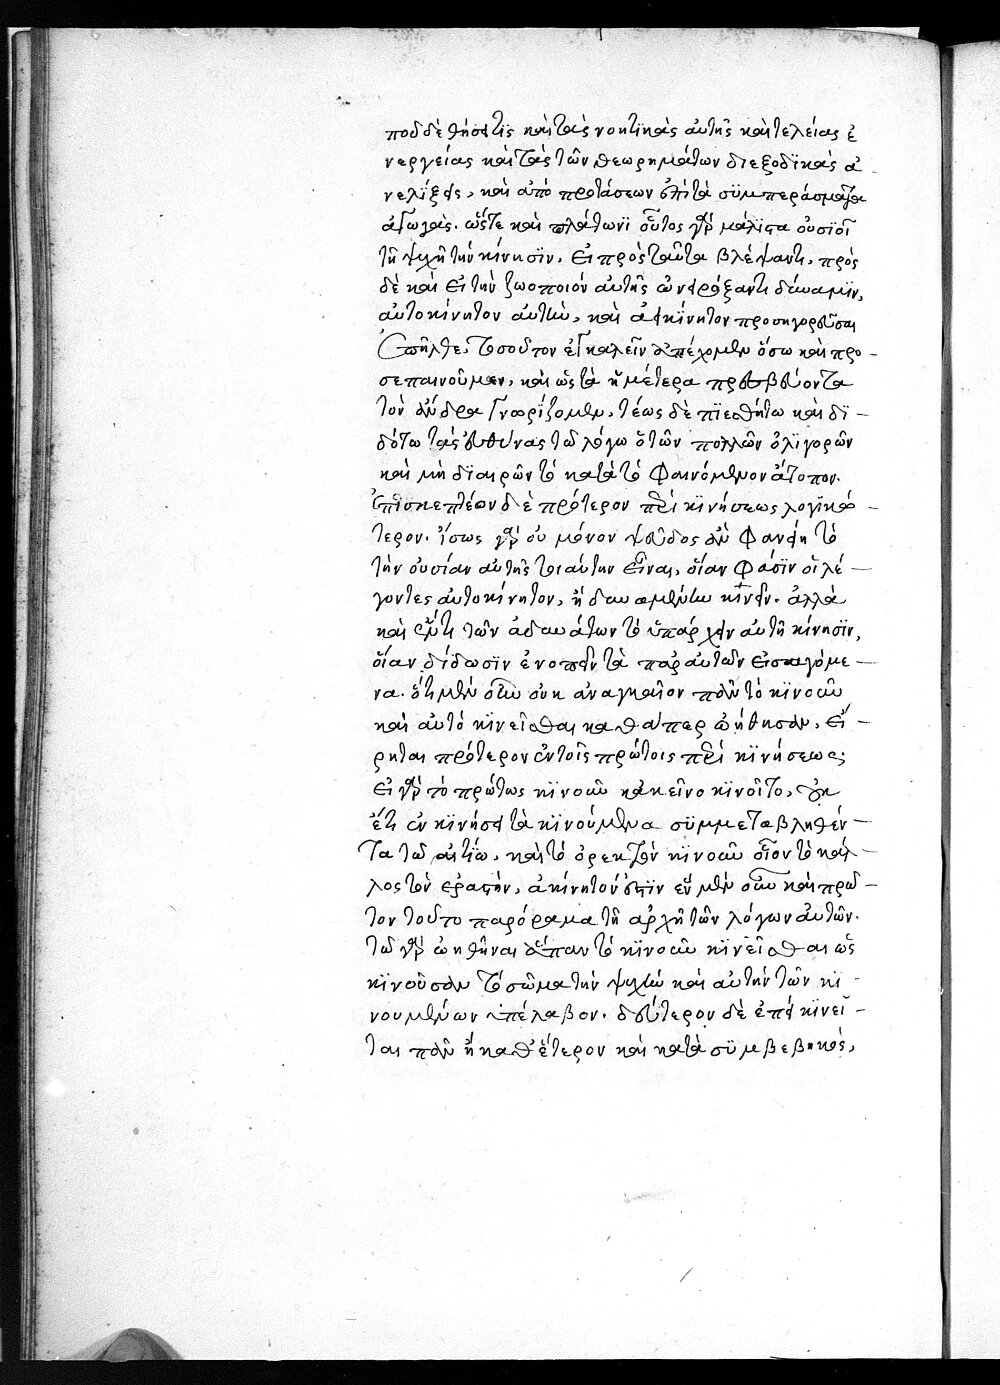 ποδδὲ θήσει τὶς καὶ τὰς νοητικὰς αὐτῆς καὶ τελείας ἐ
νεργείας καὶ τὰς τῶν θεωρημάτων διεξοδικὰς ἀ
νελίξεις, καὶ ἀπὸ προτάσεων ἐπὶ τὰ συμπεράσματα
ἀγωγὰς. ὥστε καὶ πλάτωνι οὗτος γὰρ μάλιστα οὐσιοῖ
τῆ ψυχῆ τὴν κίνησϊν. εἰ πρὸς ταῦτα βλέψαντι, πρὸς
δὲ καὶ εἰ τὴν ζωοποιὸν αὐτῆς δύναμϊν,
αὐτοκίνητον αὐτὴν, καὶ ἀεικίνητον προσηγορεῦσαι
ἐπῆλθε, τοσοῦτον ἐγκαλεῖν ἀπέχομεν ὅσω καὶ προ
σεπαινοῦμεν, καὶ ὡς τὰ ἡμέτερα πρεσβεύοντα
τὸν ἄνδρα γνωρίζομεν. τέως δὲ πϊεσθήτω καὶ δϊ
δότω τὰς εὐθύνας τῶ λόγω ὁ τῶν πολλῶν ὀλϊγορῶν
καὶ μὴ δϊαιρῶν τὸ κατὰ τὸ φαινόμενον ἄτοπον.
ἐπισκεπτέον δὲ πρότερον περὶ κϊνήσεως λογϊκώ
τερον. ἴσως γὰρ οὐ μόνον ψεῦδος ἂν φανείη τὸ
τὴν οὐσίαν αὐτῆς τοιαύτην εἶναι, οἵαν φασϊν οἱ λέ
γοντες αὐτοκίνητον, ἢ δυναμένην κϊνεῖν. ἀλλὰ
καὶ ἔστι τῶν ἀδυνάτων τὸ ὑπάρχειν αὐτῆ κίνησϊν,
οἵαν δίδωσϊν ἐνορᾶν τὰ παρ αὐτῶν εἰσαγόμε
να. ὅτι μὲν οὖν οὐκ ἀναγκαῖον πᾶν τὸ κϊνοῦν
καὶ αὐτὸ κϊνεῖσθαι καθάπερ ὠήθησαν, εἴ
ρηται πρότερον ἐν τοῖς πρώτοις περὶ κϊνήσεως.
εἰ γὰρ τὸ πρώτως κϊνοῦν κἀκεῖνο κϊνοῖτο, οὐκ
ἔτι ἐν κϊνήσει τὰ κϊνούμενα συμμεταβληθέν
τα τῶ αἰτίω, καὶ τὸ ὀρεκτὸν κϊνοῦν οἷον τὸ κάλ
λος τὸν ἐραστὴν, ἀκίνητόν ἐστϊν ἓν μὲν οὖν καὶ πρῶ
τον τοῦτο παρόραμα τῆ ἀρχῆ τῶν λόγων αὐτῶν.
τῶ γὰρ ὠηθῆναι ἅπαν τὸ κϊνοῦν κϊνεῖσθαι ὡς
κϊνοῦσαν τὸ σῶμα τὴν ψυχὴν καὶ αὐτὴν τῶν κϊ
νουμένων ὑπέλαβον. δεύτερον δὲ ἐπεὶ κϊνεῖ
ται πᾶν ἢ καθ ἕτερον καὶ κατὰ συμβεβηκὸς,